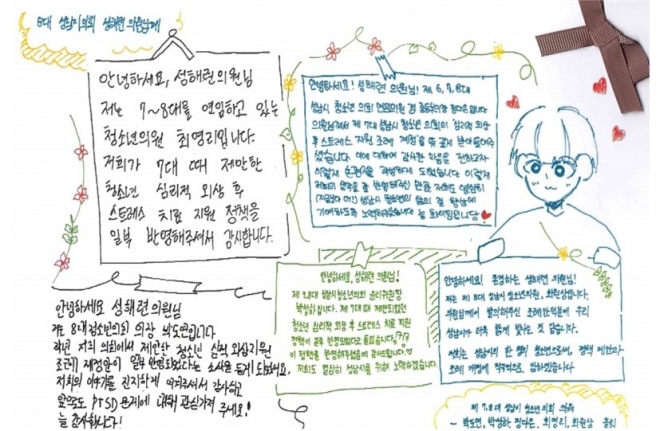 8대 성남시의회 성해련 의원님께
안녕하세요, 성해련의원님
저는 7~8대를 연임하고 있는
청소년의원 최영리입니다.
저희가 7대 때 제안한
청소년 심리적 외상 후
스트레스 치료 지원 정책을
일부 반영해주셔서 감사합니다.
안녕하세요! 성해련 의원님! 제 6, 7, 8대
성남시 청소년 의회
의원님께서 제 7대 성남시 청소년 의회의 "심리적 외상
후 스트레스 지원 조례 제정"을 뜻 깊게 받아들여주
셨습니다. 이에 대하여 감사한 마음을 전하고자
이렇게 작성하게 되었습니다 이렇게
저희의 반영해주신 만큼 저희도 열심히
성남시 청소년의 삶의 질 향상에
기여하도록 노력하겠습니다
안녕하세요, 성해련 의원님!
제 7,8대 성남시청소년의회 윤리위원장
박성하입니다. 제 7대때 제안되었던
청소년 심리적 외상 후 스트레스 치료 지원
정책이 일부 반영되었다고 들었습니다!
이 정책을 반영해주셨음에 감사드립니다
저희도 열심히 성남시를 위해 노력하겠습니다
안녕하세요! 존경하는 성해련 의원님.
저는 제 8대 성남시 청소년의원, 최원상입니다.
의원님께서 발의해주신 조례안 덕분에 우리
성남시가 더욱 밝게 빛나는 것 같습니다.
저희는 성남시의 한 명의 청소년으로써, 정책 제안과
조례 개정에 적극적으로 임하겠습니다.
안녕하세요 성해련 의원님
저는 8대청소년의회 의장 박도연입니다
작년 저희 의회에서 제안한 청소년 심리 외상지원
조례 제정안이 일부 반영되었다는 소식을 듣게 되었어요.
저희의 이야기를 진지하게 여겨주셔서 감사하고
앞으로도 PTSD 문제에 대해 관심가져 주세요!
늘 감사합니다!
제 7,8대 성남시 청소년 의회 의원
- 박도연, 박성하, 정다은, 최영리, 최원상 올림